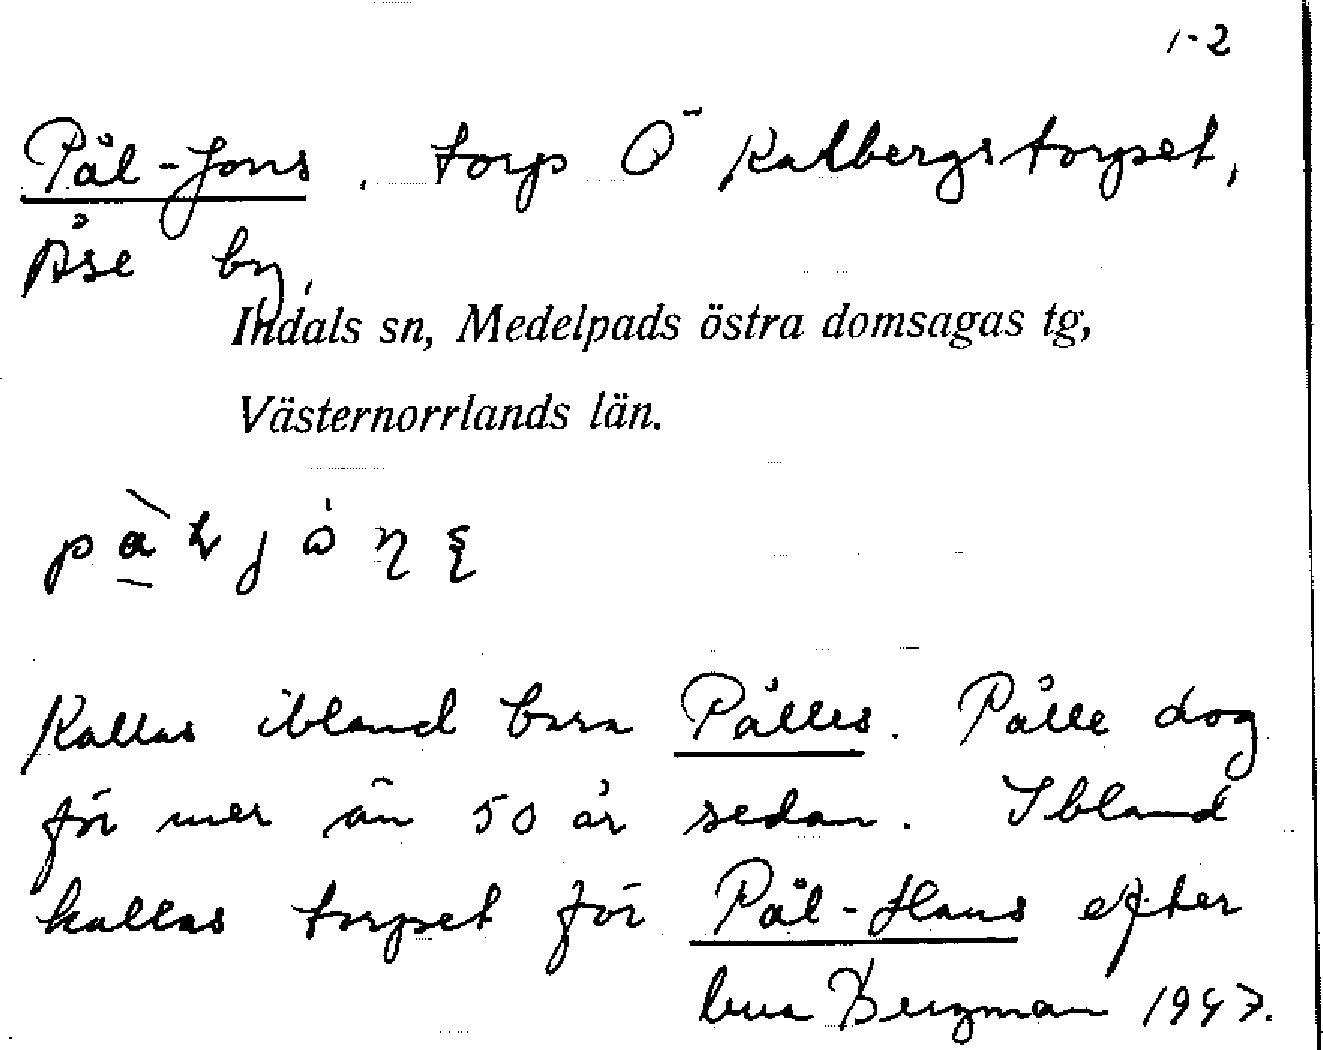 1-2
Pål-Jons, torp Ö Kalbergstorpet,
Åse by,
Indals sn, Medelpads östra domsagas tg,
Västernorrlands län.
Kallas ibland bara Pålles. Pålle dog
för mer än 50 år sedan. Ibland
kallas torpet för Pål-Hans efter
Bergman 1947.